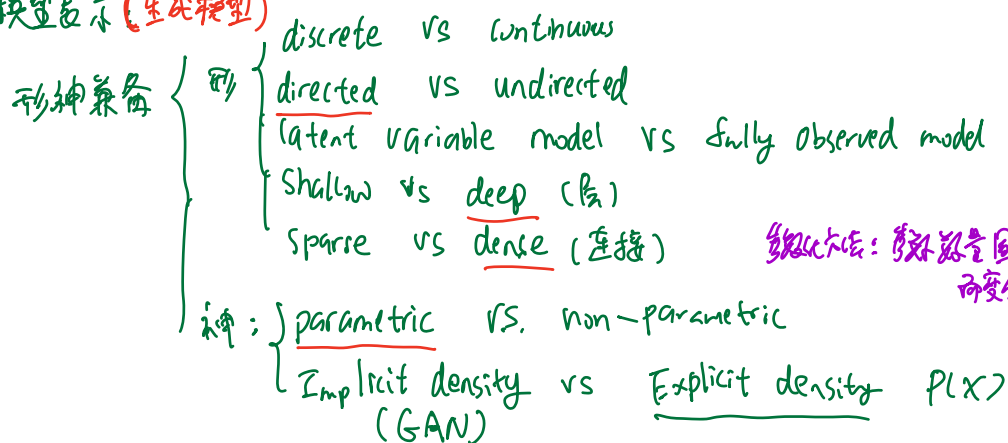 模型表示:(生成模型)
形神兼备
形
discrete vs continuous
directed vs undirected
latent variable model vs fully observed model
Shallow vs deep (层)
Sparse vs dense (连接)
参数化方法:参数数量固
而变
神:
parametric VS. non-parametric
Implicit density vs Explicit density P(X)
(GAN)